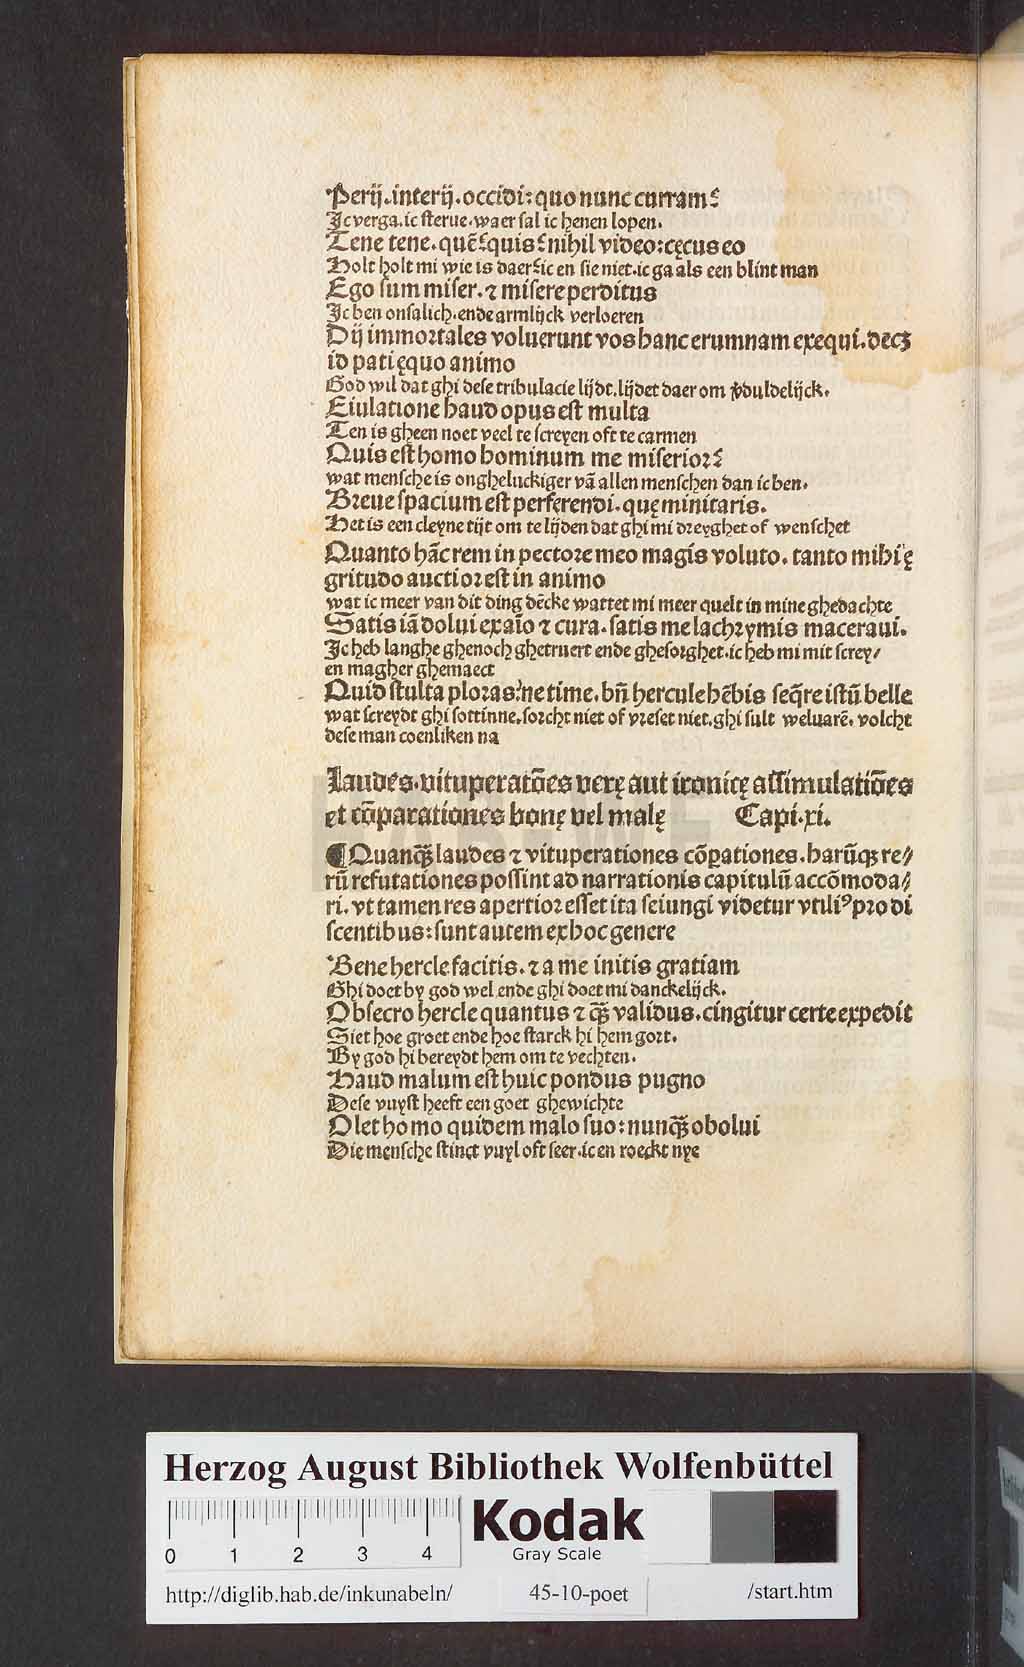 Perij.interij.occidi:quo nunc curram?
Jc verga.ic sterue.waer sal ic henen lopen.
Tene tene.quē?quis?nihil video:cęcus eo
Holt holt mi wie is daer?ic en sie niet.ic ga als een blint man
Ego sum miser.⁊ misere perditus
Jc ben onsalich.ende armlijck verloeren
Dij immortales voluerunt vos hanc erumnam exequi.decꝫ
id pati ęquo animo
God wil dat ghi dese tribulacie lijdt.lijdet daer om ꝟduldelijck.
Eiulatione haud opus est multa
Ten is gheen noet veel te screyen oft te carmen
Quis est homo hominum me miserior?
wat mensche is ongheluckiger vā allen menschen dan ic ben.
Breue spacium est perferendi.quę minitaris.
Het is een cleyne tijt om te lijden dat ghi mi dreyghet of wenschet
Quanto hāc rem in pectore meo magis voluto.tanto mihi ę
gritudo auctior est in animo
wat ic meer van dit ding dēcke wattet mi meer quelt in mine ghedachte
Satis iā dolui ex aīo ⁊ cura.satis me lachrymis maceraui.
Jc heb langhe ghenoch ghetruert ende ghesorghet.ic heb mi mit screy/
en magher ghemaect
Quid stulta ploras?ne time.bn̄ hercule hēbis seq̄re istū belle
wat screydt ghi sottinne.sorcht niet of vreset niet.ghi sult weluarē.volcht
dese man coenliken na
Laudes.vituperatōes verę aut ironicę assimulatiōes
et cōparationes bonę vel malę Capi.xi.
¶Quanq̄ꝫ laudes ⁊ vituperationes cōꝑationes.harūqꝫ re/
rū refutationes possint ad narrationis capitulū accōmoda/
ri.vt tamen res apertior esset ita seiungi videtur vtiliꝰ pro di
scentibus:sunt autem ex hoc genere
Bene hercle facitis.⁊ a me initis gratiam
Ghi doet by god wel.ende ghi doet mi danckelijck.
Obsecro hercle quantus ⁊ q̄ꝫ validus.cingitur certe expedit
Siet hoe groet ende hoe starck hi hem gort.
By god hi bereydt hem om te vechten.
Haud malum est huic pondus pugno
Dese vuyst heeft een goet ghewichte
Olet homo quidem malo suo:nunq̄ꝫ obolui
Die mensche stinct vuyl oft seer.ic en roeckt nye
Herzog August Bibliothek Wolfenbüttel
0 1 2 3 4
Kodak
Gray Scale
http://diglib.hab.de/inkunabeln/ 45-10-poet /start.htm